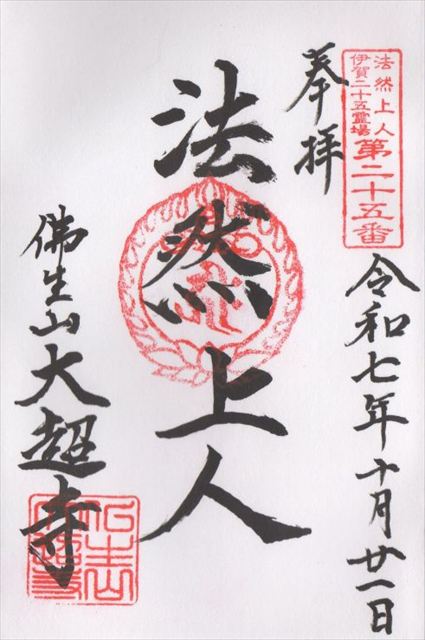 法然上人
伊賀二十五霊場
第二十五番
奉拝
令和七年十月廿一日
法然上人
佛生山大超寺